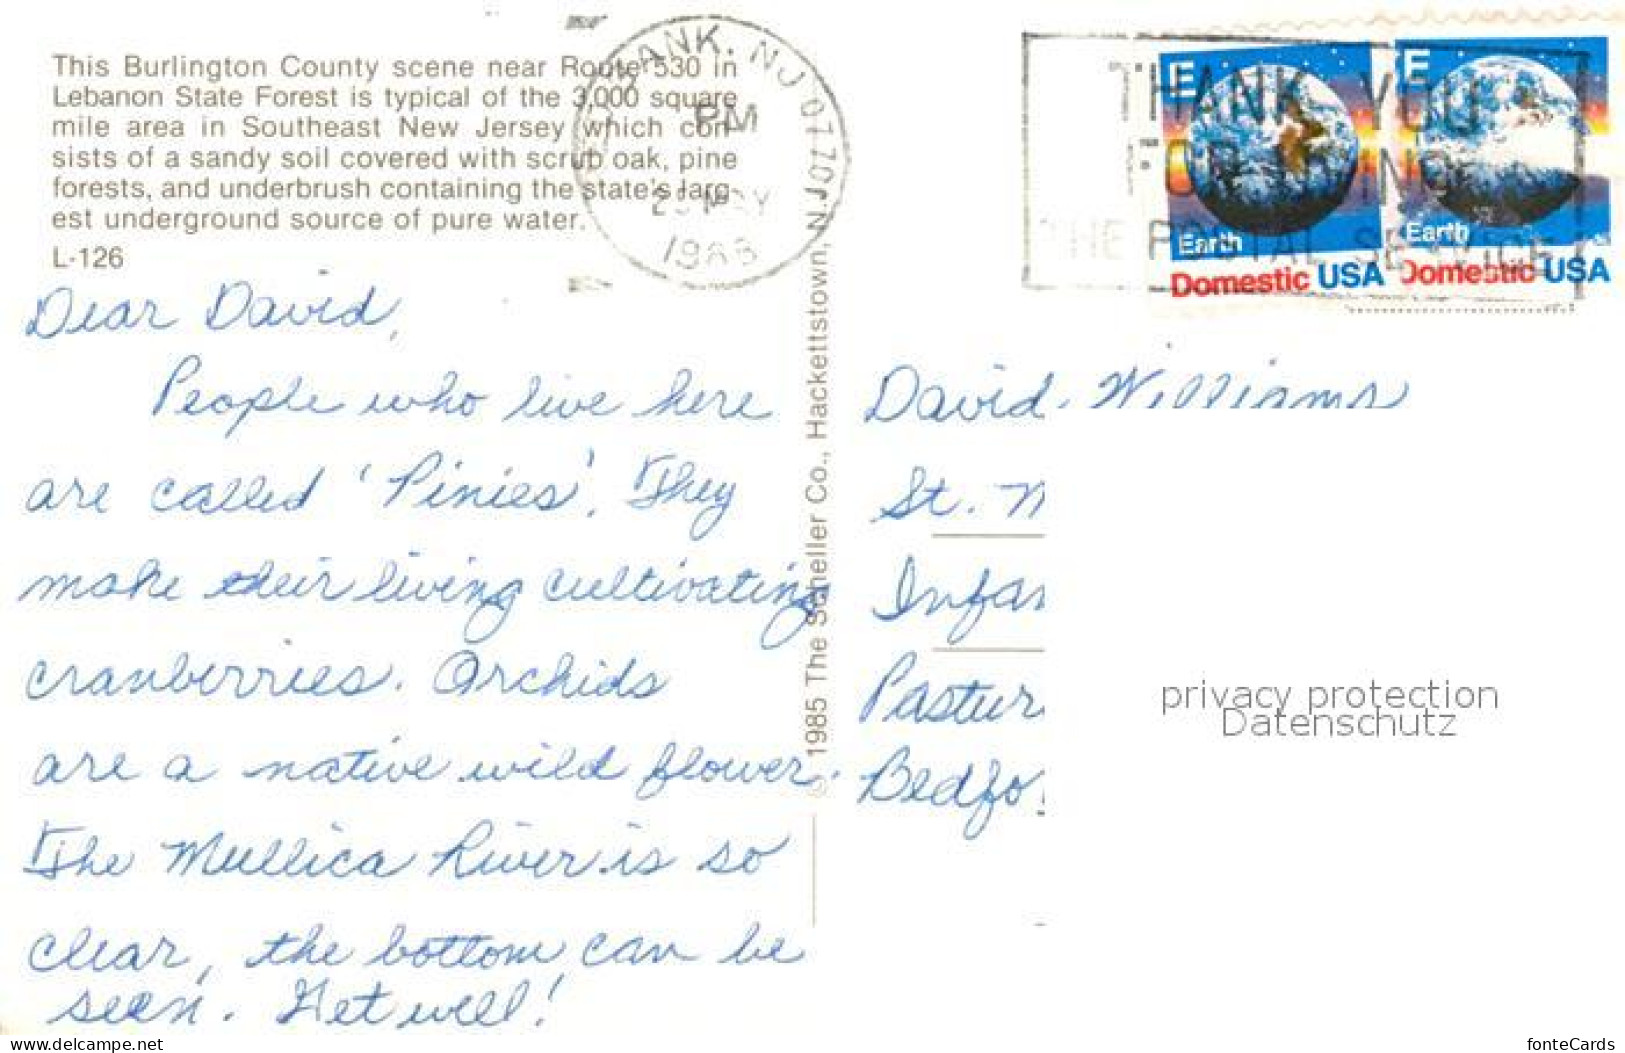 This Burlington County scene near Route 530 in
Lebanon State Forest is typical of the 3,000 square
mile area in Southeast New Jersey which con-
sists of a sandy soil covered with scrub oak, pine
forests, and underbrush containing the state's larg-
est underground source of pure water.
L-126
ANK, NJ 077
PM
1988
Dear David,
People who live here
are called 'Pinies'. They
make their living cultivating
cranberries. Orchids
are a native wild flower.
The Mullica River is so
clear, the bottom can be
seen. Get well!
© 1985 The Scheller Co., Hackettstown, NJ
THANK YOU
THE POSTAL SERVICE
E
Earth
Domestic USA
E
Earth
Domestic USA
David Williams
St. M
Infan
Pastur
Bedfo
privacy protection
Datenschutz
www.delcampe.net
fonteCards